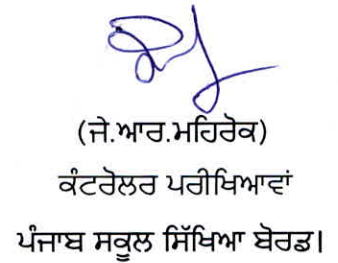 (ਜੇ.ਆਰ.ਮਹਿਰੋਕ)
ਕੰਟਰੋਲਰ ਪਰੀਖਿਆਵਾਂ
ਪੰਜਾਬ ਸਕੂਲ ਸਿੱਖਿਆ ਬੋਰਡ।